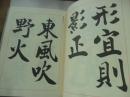 形直則
影正
東風吹
野火